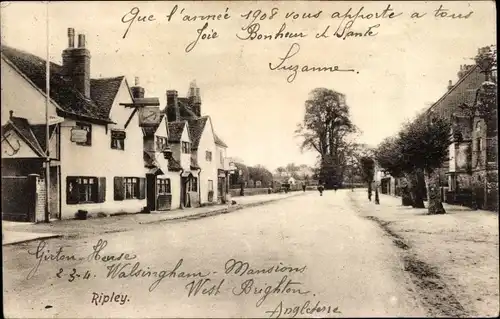 Que l'année 1908 vous apporte à tous
Joie Bonheur et Santé
Suzanne
Girton House
2-3-4 Walsingham Mansions
West Brighton
Angleterre
Ripley.